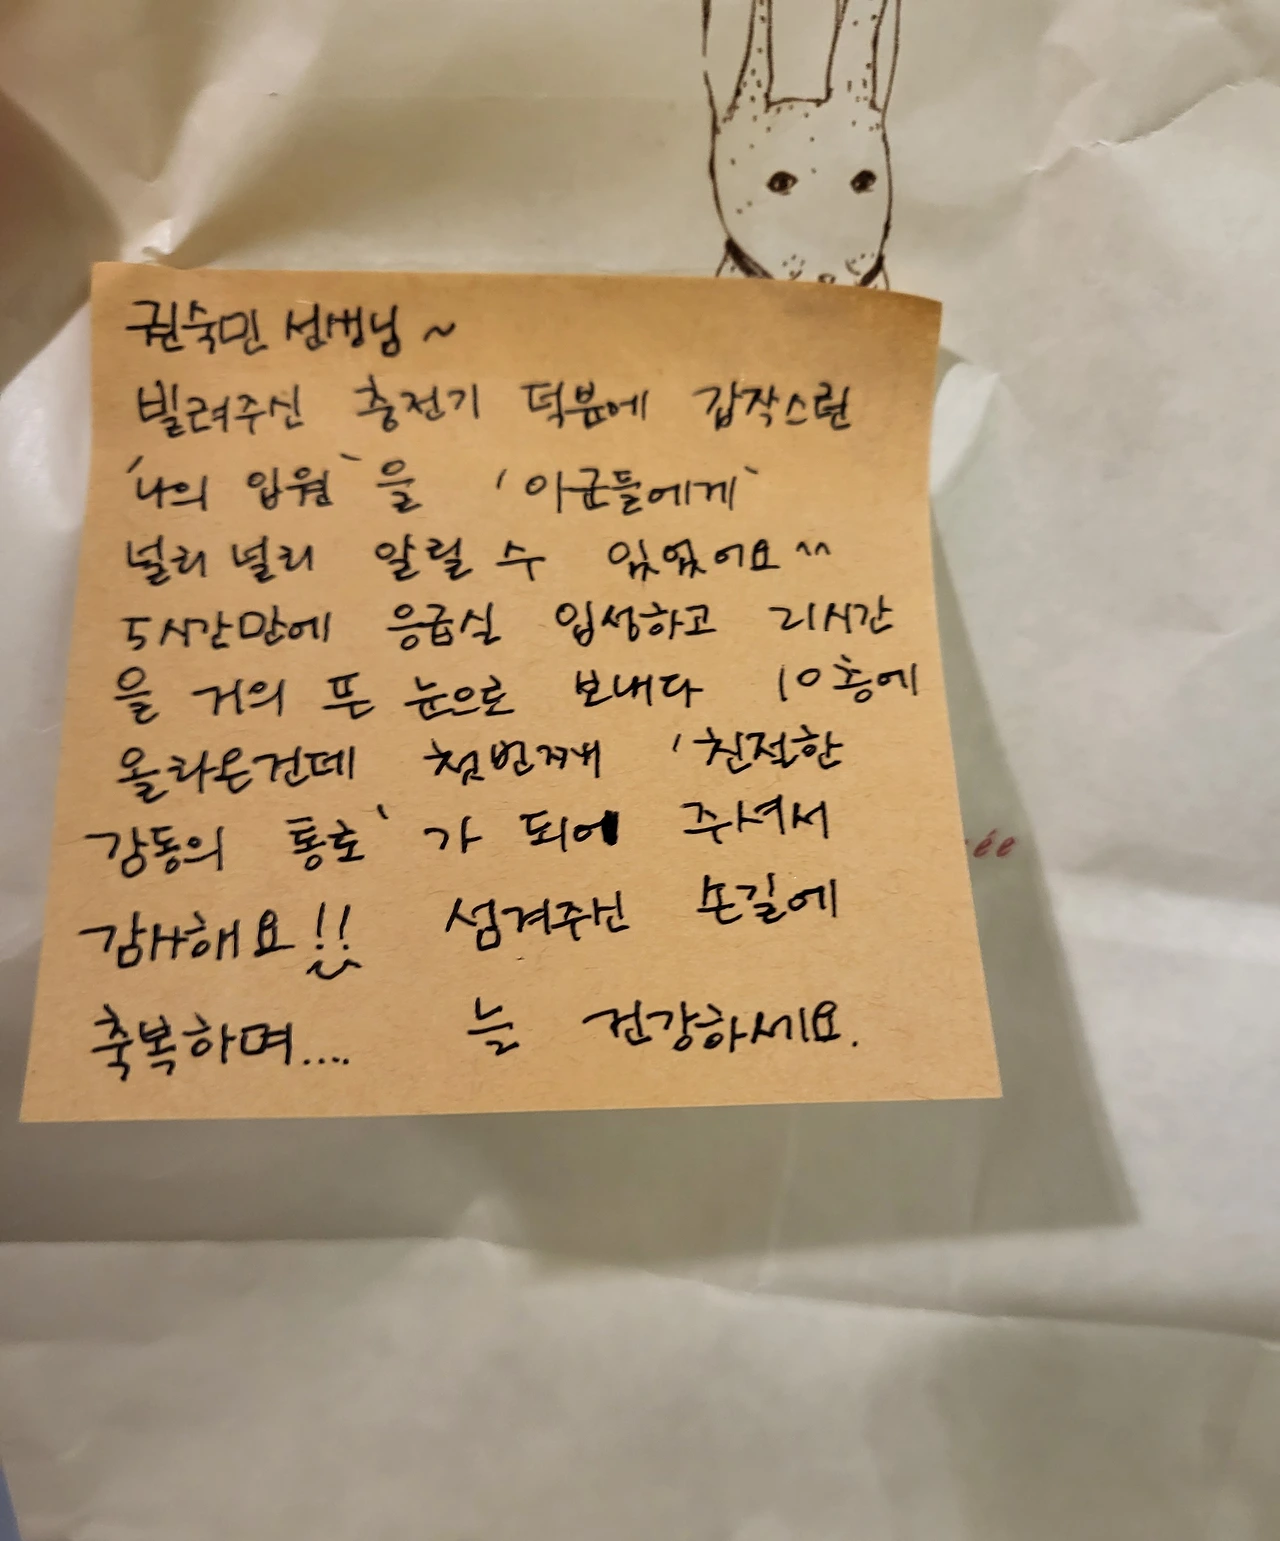 권숙민 선생님 ~
빌려주신 충전기 덕분에 갑작스런
'나의 입원'을 '아군들에게'
널리 널리 알릴 수 있었어요 ^^
5시간만에 응급실 입성하고 21시간
을 거의 뜬 눈으로 보내다 10층에
올라온건데 첫번째 '친절한
감동의 통로'가 되어 주셔서
감사해요!!
섬겨주신 손길에
축복하며.... 늘 건강하세요.
ée